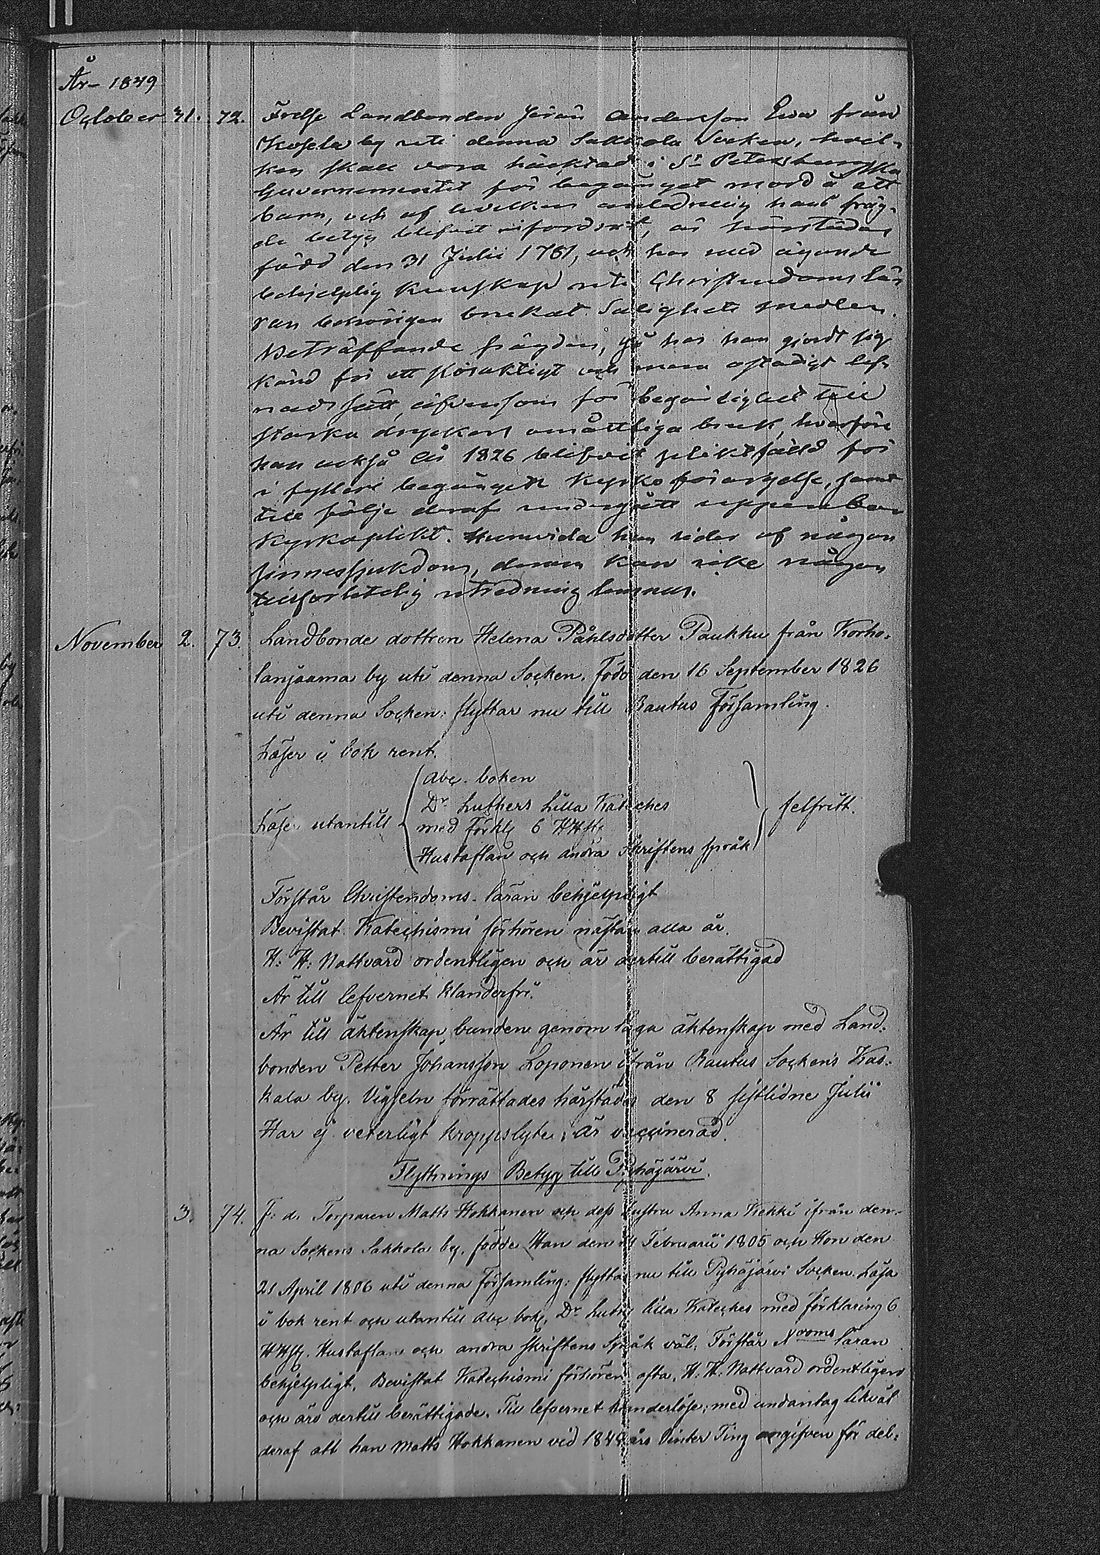 År 1849
October 31. 72. Frälse Landbonden Jöran Andersson Ewa från
Kosela by uti denna Sakkola Socken, hvil-
ken skall vara häcktad i St Petersburgska
Guvernementet för begånget mord å ett
barn, och af hvilken anledning hans fräg-
de betyg blifvit infordrat, är härstädes
född den 31 Julii 1781, och har med ägande
behjelplig kunskap uti Christendoms lä-
ran behörigen brukat Salighets medlen.
Beträffande frägden, så har han gjordt sig
känd för ett och mera ostadigt lef-
nadssätt, äfvensom för begärlighet till
starka dryckers omåttliga bruk, hvarföre
han också År 1826 blifvit pliktfälld för
i fylleri begånget kyrko förargelse, samt
till följe deraf undergått uppenbar
Kyrkoplikt. Huruvida han lider af någon
sinnessjukdom, derom kan icke någon
tillförlitelig utredning lemnas.
November 2. 73. Landbonde dottren Helena Påhlsdotter Paukku från Korho-
lanjaama by uti denna Socken. Född den 16 September 1826
uti denna Socken: flyttar nu till Rautus Församling.
Läser i bok rent.
Abc. boken
Dr Luthers Lilla Kateches
Läser utantill med förkl. 6 HHft felfritt.
Hustaflan och andra Skriftens språk
Förstår Christendoms-läran behjelpligt
Bevistat Katechismi förhören nästan alla år.
H. H. Nattvard ordentligen och är dertill berättigad
Är till lefvernet klanderfri.
Är till äktenskap bunden genom laga äktenskap med Land-
bonden Petter Johansson Loponen ifrån Rautus Sockens Kas-
kala by. Vigseln förrättades härstädes den 8 sistlidne Julii
Har ej veterligt kroppslyte; är vaccinerad.
Flyttnings Betyg till Pyhäjärvi.
3. 74. F. d. Torparen Matts Hokkanen och dess hustru Anna Kekki ifrån den-
na Sockens Sakkola by, födde Han den Februarii 1805 och Hon den
21 April 1806 uti denna Församling: flyttar nu till Pyhäjärvi Socken. Läsa
i bok rent och utantill Abc bok, Dr Luth. lilla Kateches med förklaring 6
HHft. Hustaflan och andra Skriftens Språk väl. Förstår Xdoms läran
behjelpligt. Bevistat Katechismi förhören ofta, H. H. Nattvard ordentligen
och äro dertill berättigade. Till lefvernet klanderlöse; med undantag likväl
deraf att han Matts Hokkanen vid 1848 års Vinter Ting angifven för del-